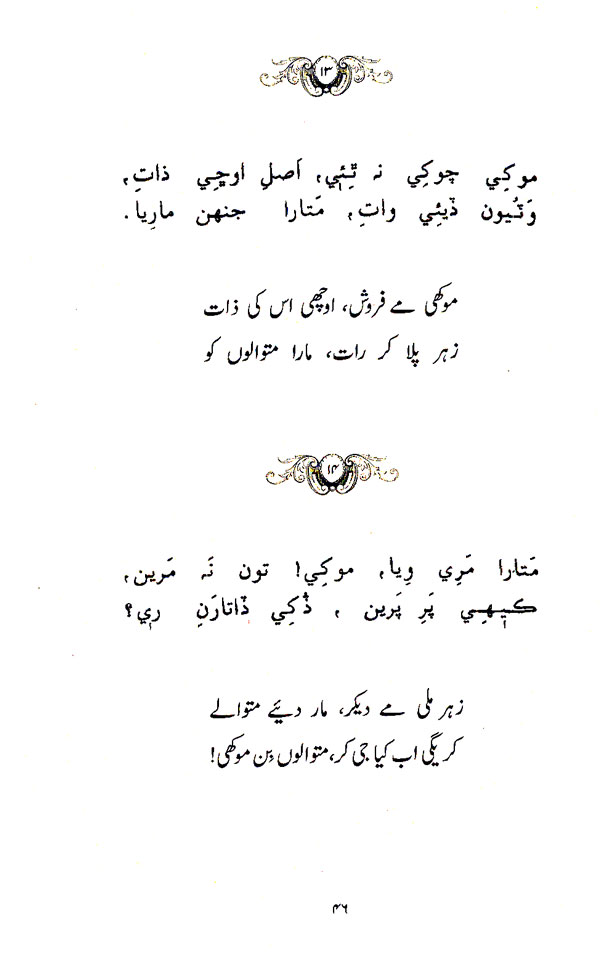 ۱۳
موکِي چوکِي نہ ٿِئي، اَصلِ اوڇِي ذاتِ،
وَٽيُون ڏيئِي واتِ، مَتارا جنھن مارِيا.
موکھی مے فروش، اوچھی اس کی ذات
زہر پلا کر رات، مارا متوالوں کو
۱۴
مَتارا مَرِي وِيا، موکِي! تون نَہ مَرين،
ڪيھِي پَرِ پَرين، ڏُکِي ڏاتارَنِ ري؟
زہر ملی مے دیکر، مار دئیے متوالے
کریگی اب کیا جی کر، متوالوں بِن موکھی!
۴۶